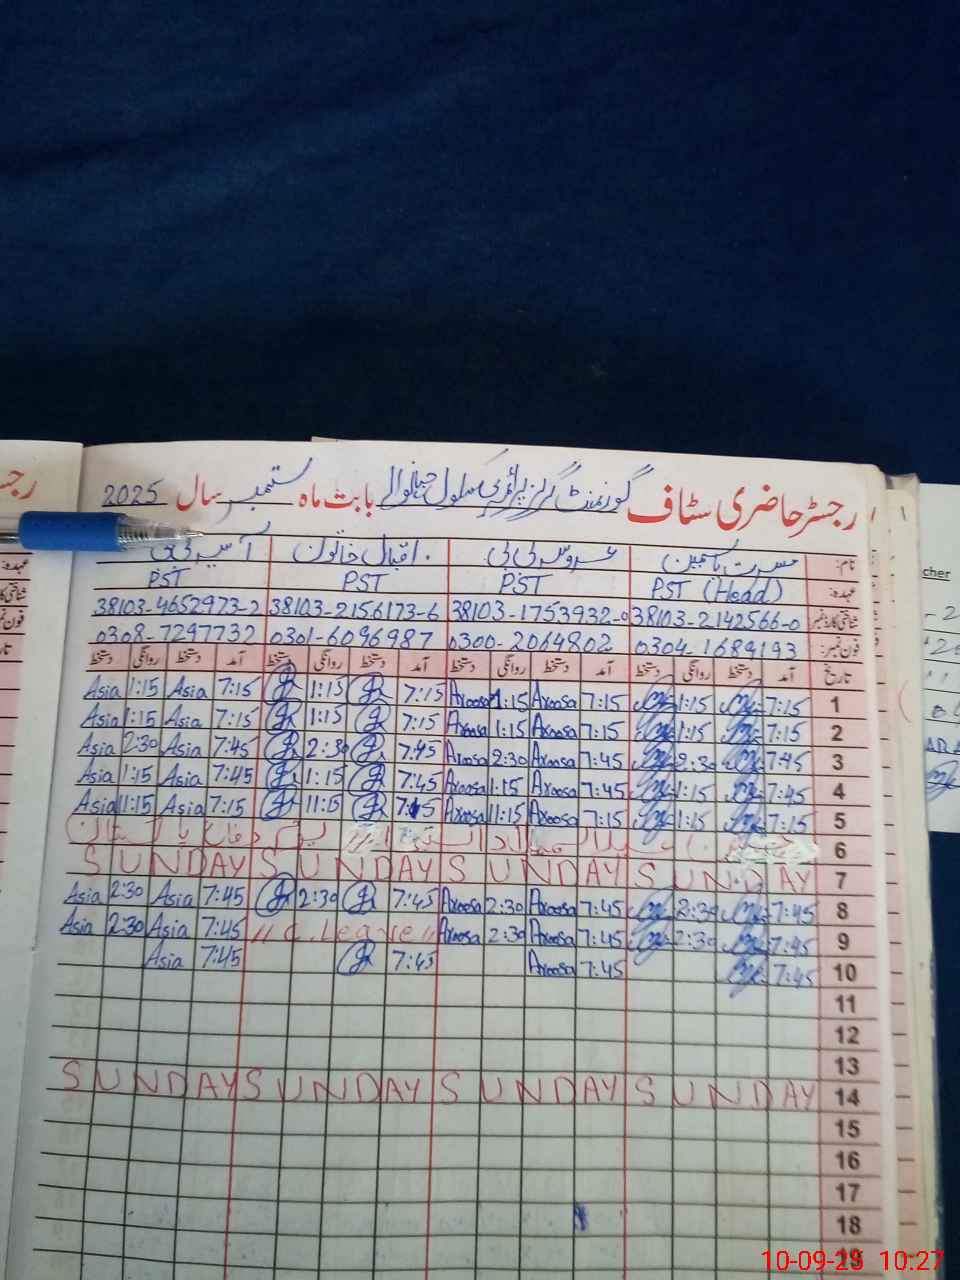 رجسٹر حاضری سٹاف گورنمنٹ گرلز پرائمری سکول بابت ماہ ستمبر سال 2025
نام: مسرت یاسمین عروس بی بی اقبال خاتون آسیہ بی بی
عہدہ: PST (Head) PST PST PST
شناختی کارڈ نمبر 38103-2142566-0 38103-1753932-0 38103-2156173-6 38103-4652973-2
فون نمبر: 0304-1689193 0300-2064802 0301-6096987 0308-7297732
تاریخ آمد دستخط روانگی دستخط آمد دستخط روانگی دستخط آمد دستخط روانگی دستخط آمد دستخط روانگی دستخط
1 7:15 1:15 7:15 Aroosa 1:15 Aroosa 7:15 1:15 7:15 Asia 1:15 Asia
2 7:15 1:15 7:15 Aroosa 1:15 Aroosa 7:15 1:15 7:15 Asia 1:15 Asia
3 7:45 2:30 7:45 Aroosa 2:30 Aroosa 7:45 2:30 7:45 Asia 2:30 Asia
4 7:45 1:15 7:45 Aroosa 1:15 Aroosa 7:45 1:15 7:45 Asia 1:15 Asia
5 7:15 1:15 7:15 Aroosa 11:15 Aroosa 11:15 7:15 Asia 11:15 Asia
6
7 SUNDAY SUNDAY SUNDAY SUNDAY
8 7:45 2:30 7:45 Aroosa 2:30 Aroosa 7:45 2:30 7:45 Asia 2:30 Asia
9 7:45 2:30 7:45 Aroosa 2:30 Aroosa "C.Leave" 7:45 Asia 2:30 Asia
10 7:45 7:45 Aroosa 7:45 7:45 Asia
11
12
13
14 SUNDAY SUNDAY SUNDAY SUNDAY
15
16
17
18
19
cher
10-09-25 10:27